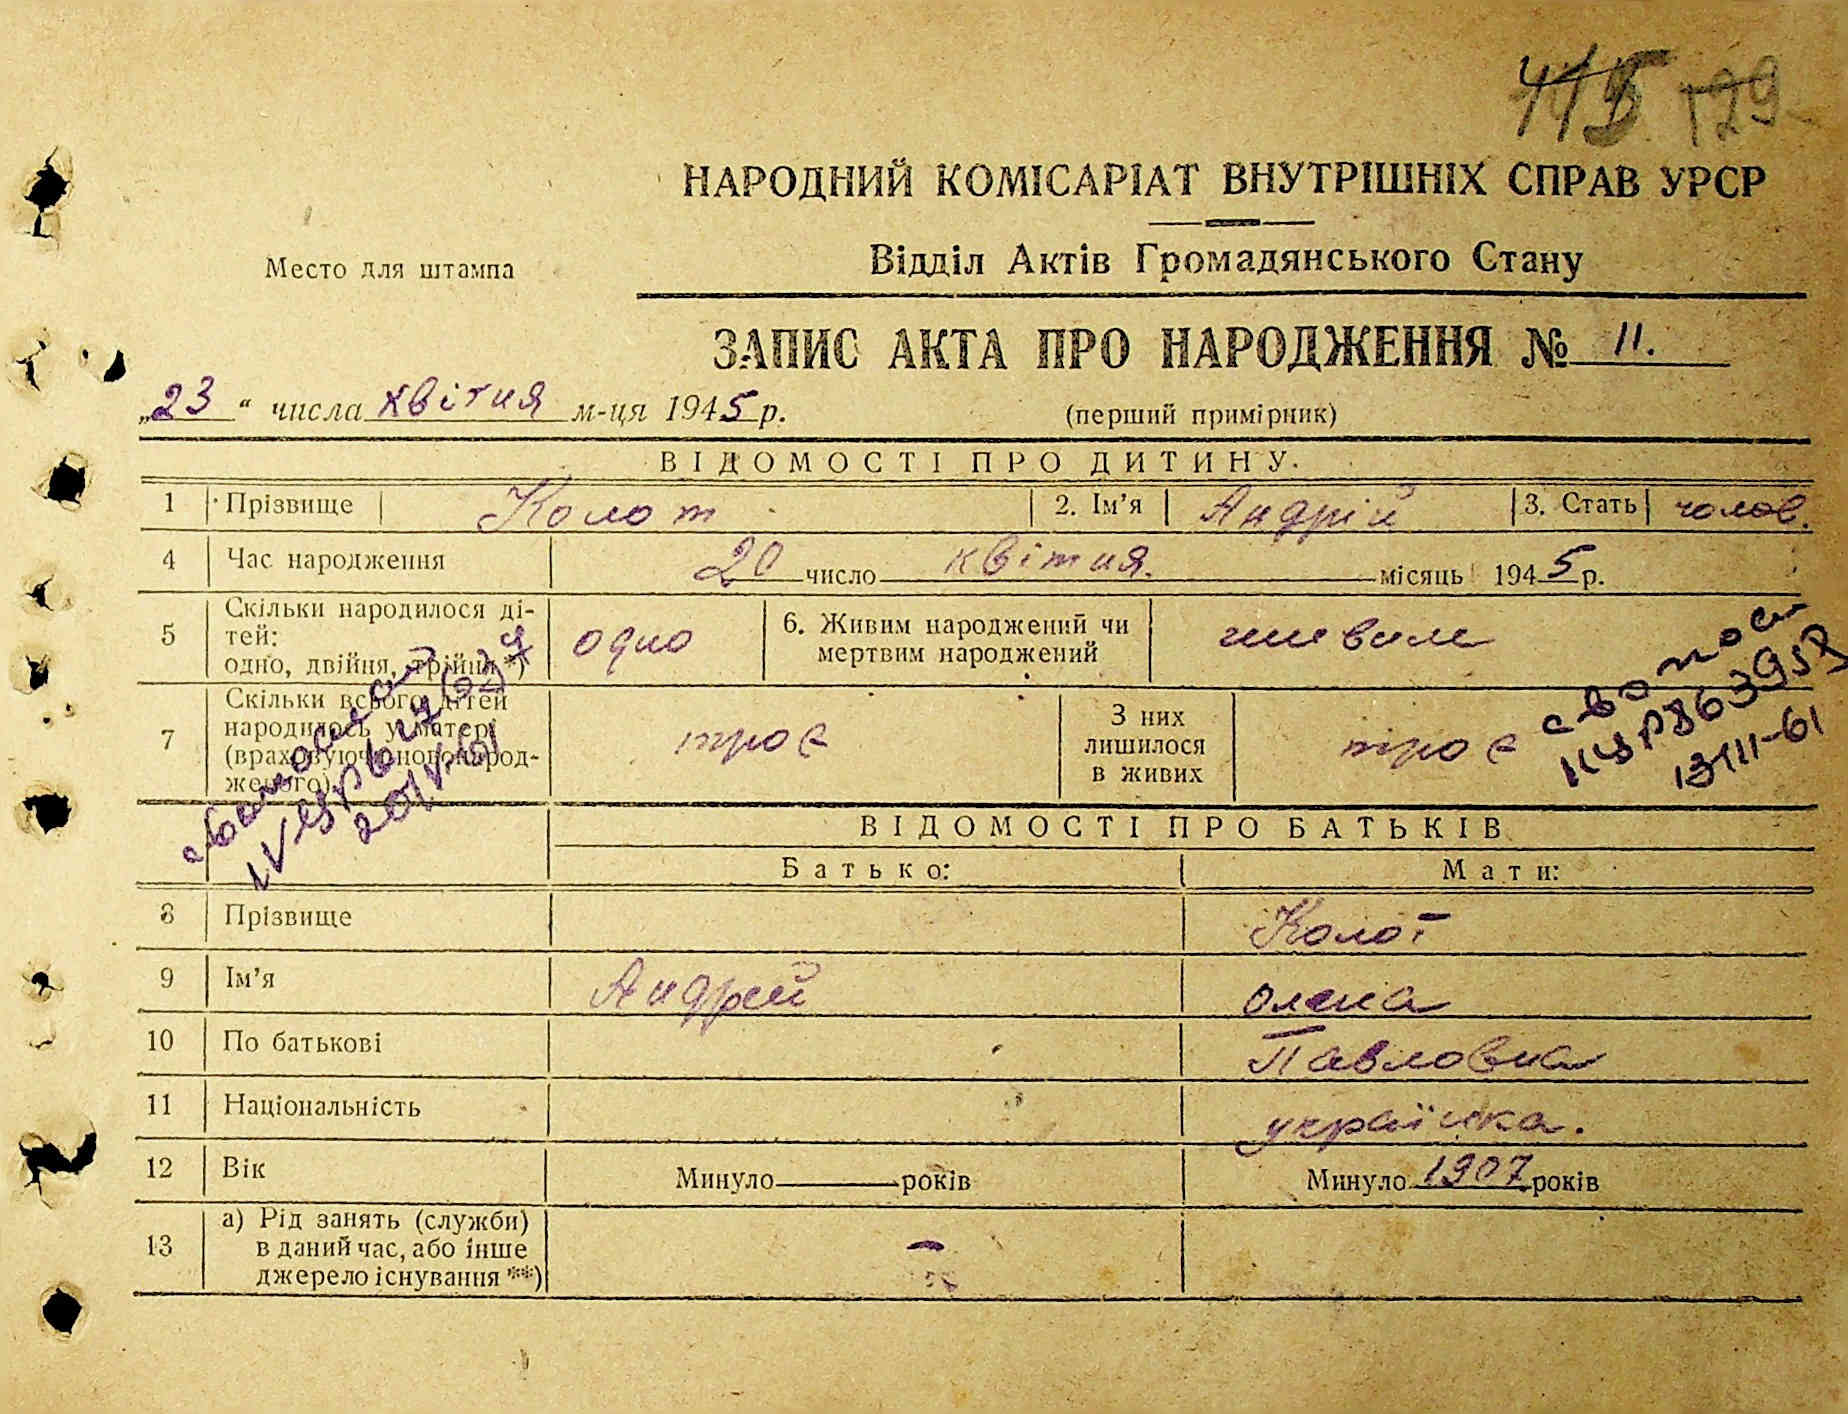 115 129
НАРОДНИЙ КОМІСАРІАТ ВНУТРІШНІХ СПРАВ УРСР
Место для штампа
Відділ Актів Громадянського Стану
ЗАПИС АКТА ПРО НАРОДЖЕННЯ № 11.
„23“ числа квітня м-ця 1945 р.
(перший примірник)
ВІДОМОСТІ ПРО ДИТИНУ.
1 Прізвище Колот 2. Ім’я Андрій 3. Стать чолов.
4 Час народження 20 число квітня. місяць 1945 р.
5 Скільки народилося ді-
тей:
одно, двійня, трійня *)
одно
6. Живим народжений чи
мертвим народжений
живим
7 Скільки всього дітей
народилось у матері
(враховуючи новонарод-
женого)
троє
З них
лишилося
в живих
троє
13/III-61
ВІДОМОСТІ ПРО БАТЬКІВ
Батько: Мати:
8 Прізвище Колот
9 Ім’я Андрей Олена
10 По батькові Павловна
11 Національність українка.
12 Вік Минуло років Минуло 1907 років
13 а) Рід занять (служби)
в даний час, або інше
джерело існування **)
—